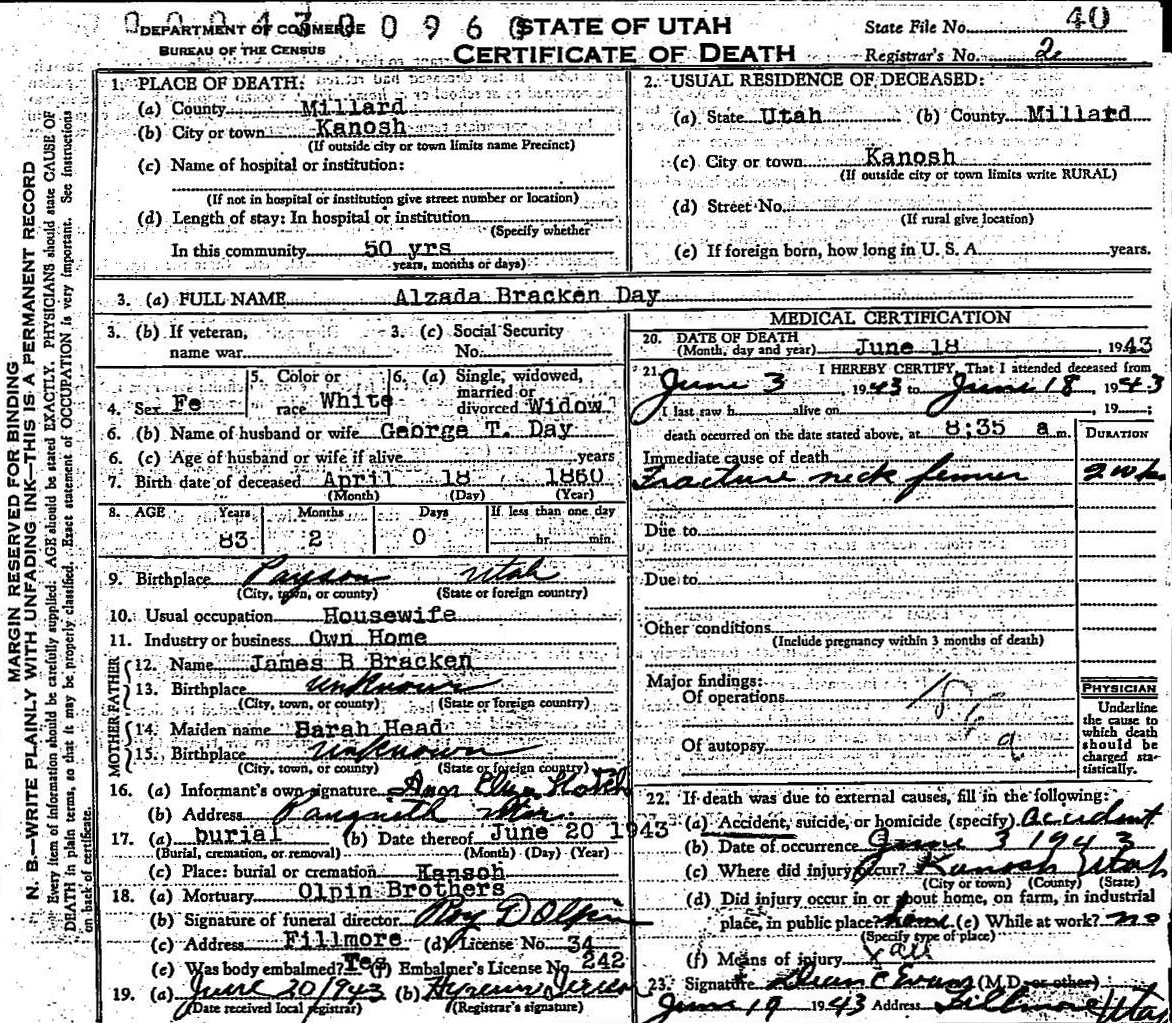 0 0 0 4 3 0 0 9 6 0
DEPARTMENT OF COMMERCE
BUREAU OF THE CENSUS
STATE OF UTAH
CERTIFICATE OF DEATH
State File No. 40
Registrar's No. 2
MARGIN RESERVED FOR BINDING
N. B.—WRITE PLAINLY WITH UNFADING INK—THIS IS A PERMANENT RECORD
Every item of information should be carefully supplied. AGE should be stated EXACTLY. PHYSICIANS should state CAUSE OF
DEATH in plain terms, so that it may be properly classified. Exact statement of OCCUPATION is very important. See instructions
on back of certificate.
1. PLACE OF DEATH:
(a) County Millard
(b) City or town Kanosh
(If outside city or town limits name Precinct)
(c) Name of hospital or institution:
(If not in hospital or institution give street number or location)
(d) Length of stay: In hospital or institution
(Specify whether
In this community 50 yrs
years, months or days)
2. USUAL RESIDENCE OF DECEASED:
(a) State Utah (b) County Millard
(c) City or town Kanosh
(If outside city or town limits write RURAL)
(d) Street No.
(If rural give location)
(e) If foreign born, how long in U. S. A. years.
3. (a) FULL NAME Alzada Bracken Day
3. (b) If veteran, 3. (c) Social Security
name war No.
4. Sex Fe 5. Color or race White 6. (a) Single, widowed, married or divorced Widow
6. (b) Name of husband or wife George T. Day
6. (c) Age of husband or wife if alive years
7. Birth date of deceased April 18 1860
(Month) (Day) (Year)
8. AGE Years Months Days If less than one day
83 2 0 hr. min.
9. Birthplace Payson Utah
(City, town, or county) (State or foreign country)
10. Usual occupation Housewife
11. Industry or business Own Home
FATHER
12. Name James B Bracken
13. Birthplace unknown
(City, town, or county) (State or foreign country)
MOTHER
14. Maiden name Sarah Head
15. Birthplace unknown
(City, town, or county) (State or foreign country)
16. (a) Informant's own signature
(b) Address
17. (a) burial (b) Date thereof June 20 1943
(Burial, cremation, or removal) (Month) (Day) (Year)
(c) Place: burial or cremation Kansoh
18. (a) Mortuary Olpin Brothers
(b) Signature of funeral director Roy D Olpin
(c) Address Fillmore (d) License No. 34
(e) Was body embalmed? Yes (f) Embalmer's License No. 242
19. (a) June 20 1943 (b)
(Date received local registrar) (Registrar's signature)
MEDICAL CERTIFICATION
20. DATE OF DEATH
(Month, day and year) June 18, 1943
21. I HEREBY CERTIFY, That I attended deceased from
June 3, 1943 to June 18, 1943
I last saw h alive on , 19 ;
death occurred on the date stated above, at 8:35 a m.
DURATION
Immediate cause of death
Fracture neck femur 2 wks
Due to
Due to
Other conditions
(Include pregnancy within 3 months of death)
Major findings:
Of operations
Of autopsy
PHYSICIAN
Underline
the cause to
which death
should be
charged sta-
tistically.
22. If death was due to external causes, fill in the following:
(a) Accident, suicide, or homicide (specify) Accident
(b) Date of occurrence June 3 1943
(c) Where did injury occur? Kanosh Utah
(City or town) (County) (State)
(d) Did injury occur in or about home, on farm, in industrial
place, in public place? home (e) While at work? no
(Specify type of place)
(f) Means of injury
23. Signature Dean C Evans (M.D. or other)
June 19 1943 Address Fillmore Utah